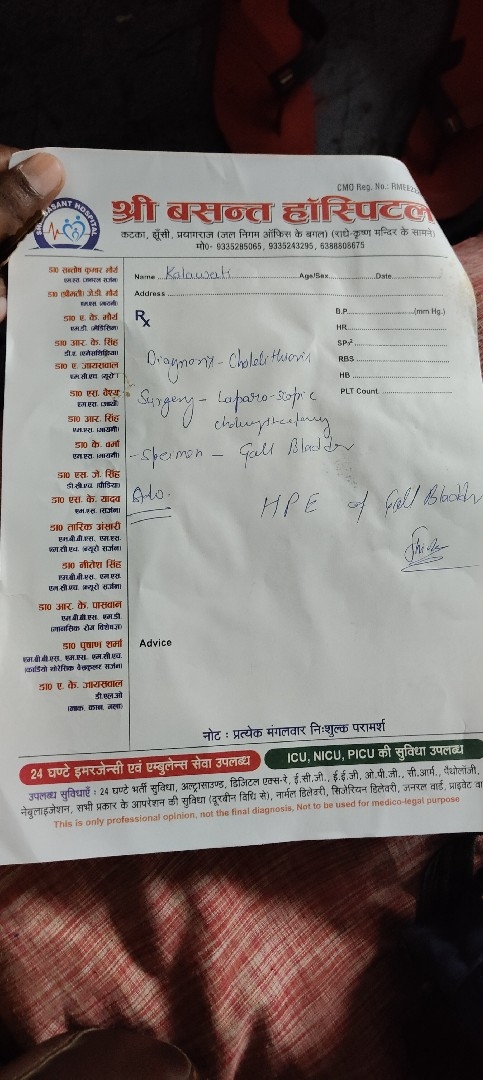 CMO Reg. No.: RMEE22
SHRI BASANT HOSPITAL
श्री बसन्त हॉस्पिटल
कटका, झूँसी, प्रयागराज (जल निगम ऑफिस के बगल) (राधे-कृष्ण मन्दिर के सामने)
मो0- 9335285065, 9335243295, 6388808675
Name Kalawati Age/Sex Date
Address
Rx
B.P. (mm Hg.)
HR
SPo²
RBS
HB
PLT Count
डा0 सन्तोष कुमार मौर्य
एम.एस. (जनरल सर्जन)
डा0 (श्रीमती) जे.डी. मौर्य
डा0 ए. के. मौर्य
एम.डी. (मेडिसिन)
डा0 आर. के. सिंह
डी.ए. (एनेसथिसिया)
डा0 ए. जायसवाल
एम.सी.एच. यूरो
डा0 एस. वैश्य
डा0 आर. सिंह
डा0 के. वर्मा
डा0 एस. जे. सिंह
डी.सी.एच. (पीडिया)
डा0 एस. के. यादव
एम.एस. (सर्जन)
डा0 तारिक अंसारी
एम.बी.बी.एस. एम.एस.
एम.सी.एच. (न्यूरो सर्जन)
डा0 नीतेश सिंह
एम.बी.बी.एस. एम.एस.
एम.सी.एच. (न्यूरो सर्जन)
डा0 आर. के. पासवान
एम.बी.बी.एस. एम.डी.
(मानसिक रोग विशेषज्ञ)
डा0 पुषाण शर्मा
एम.बी.बी.एस. एम.एस. एम.सी.एच.
(कार्डियो थोरेसिक वैसकुलर सर्जन)
डा0 ए. के. जायसवाल
डी.एल.ओ
(नाक, कान, गला)
Diagnosis - Cholelithiasis
Surgery - Laparo-scopic
cholecystectomy
- Specimen - Gall Bladder
Adv.
HPE of Gall Bladder
Advice
नोट : प्रत्येक मंगलवार निःशुल्क परामर्श
24 घण्टे इमरजेन्सी एवं एम्बुलेन्स सेवा उपलब्ध
ICU, NICU, PICU की सुविधा उपलब्ध
उपलब्ध सुविधाएँ : 24 घण्टे भर्ती सुविधा, अल्ट्रासाउण्ड, डिजिटल एक्स-रे, ई.सी.जी., ई.ई.जी, ओ.पी.जी., सी.आर्म., पैथोलॉजी,
नेबुलाइजेशन, सभी प्रकार के आपरेशन की सुविधा (दूरबीन विधि से), नार्मल डिलेवरी, सिजेरियन डिलेवरी, जनरल वार्ड, प्राइवेट वा
This is only professional opinion, not the final diagnosis, Not to be used for medico-legal purpose